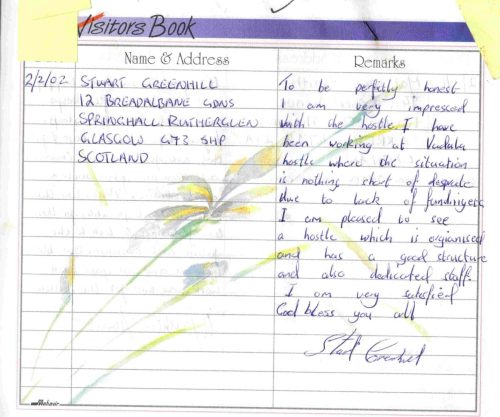 Visitors Book
Name & Address
Remarks
2/2/02
STUART GREENHILL
12 BREADALBANE GDNS
SPRINGHALL. RUTHERGLEN
GLASGOW G73 5HP
SCOTLAND
To be perfitly honest
I am very impressed
With the hostle. I have
been working at
hostle where the situation
is nothing short of desprate
due to lack of funding etc
I am pleased to see
a hostle which is organised
and has a good structure
and also dedicated staff.
I am very satisfied
God bless you all
Mahavir